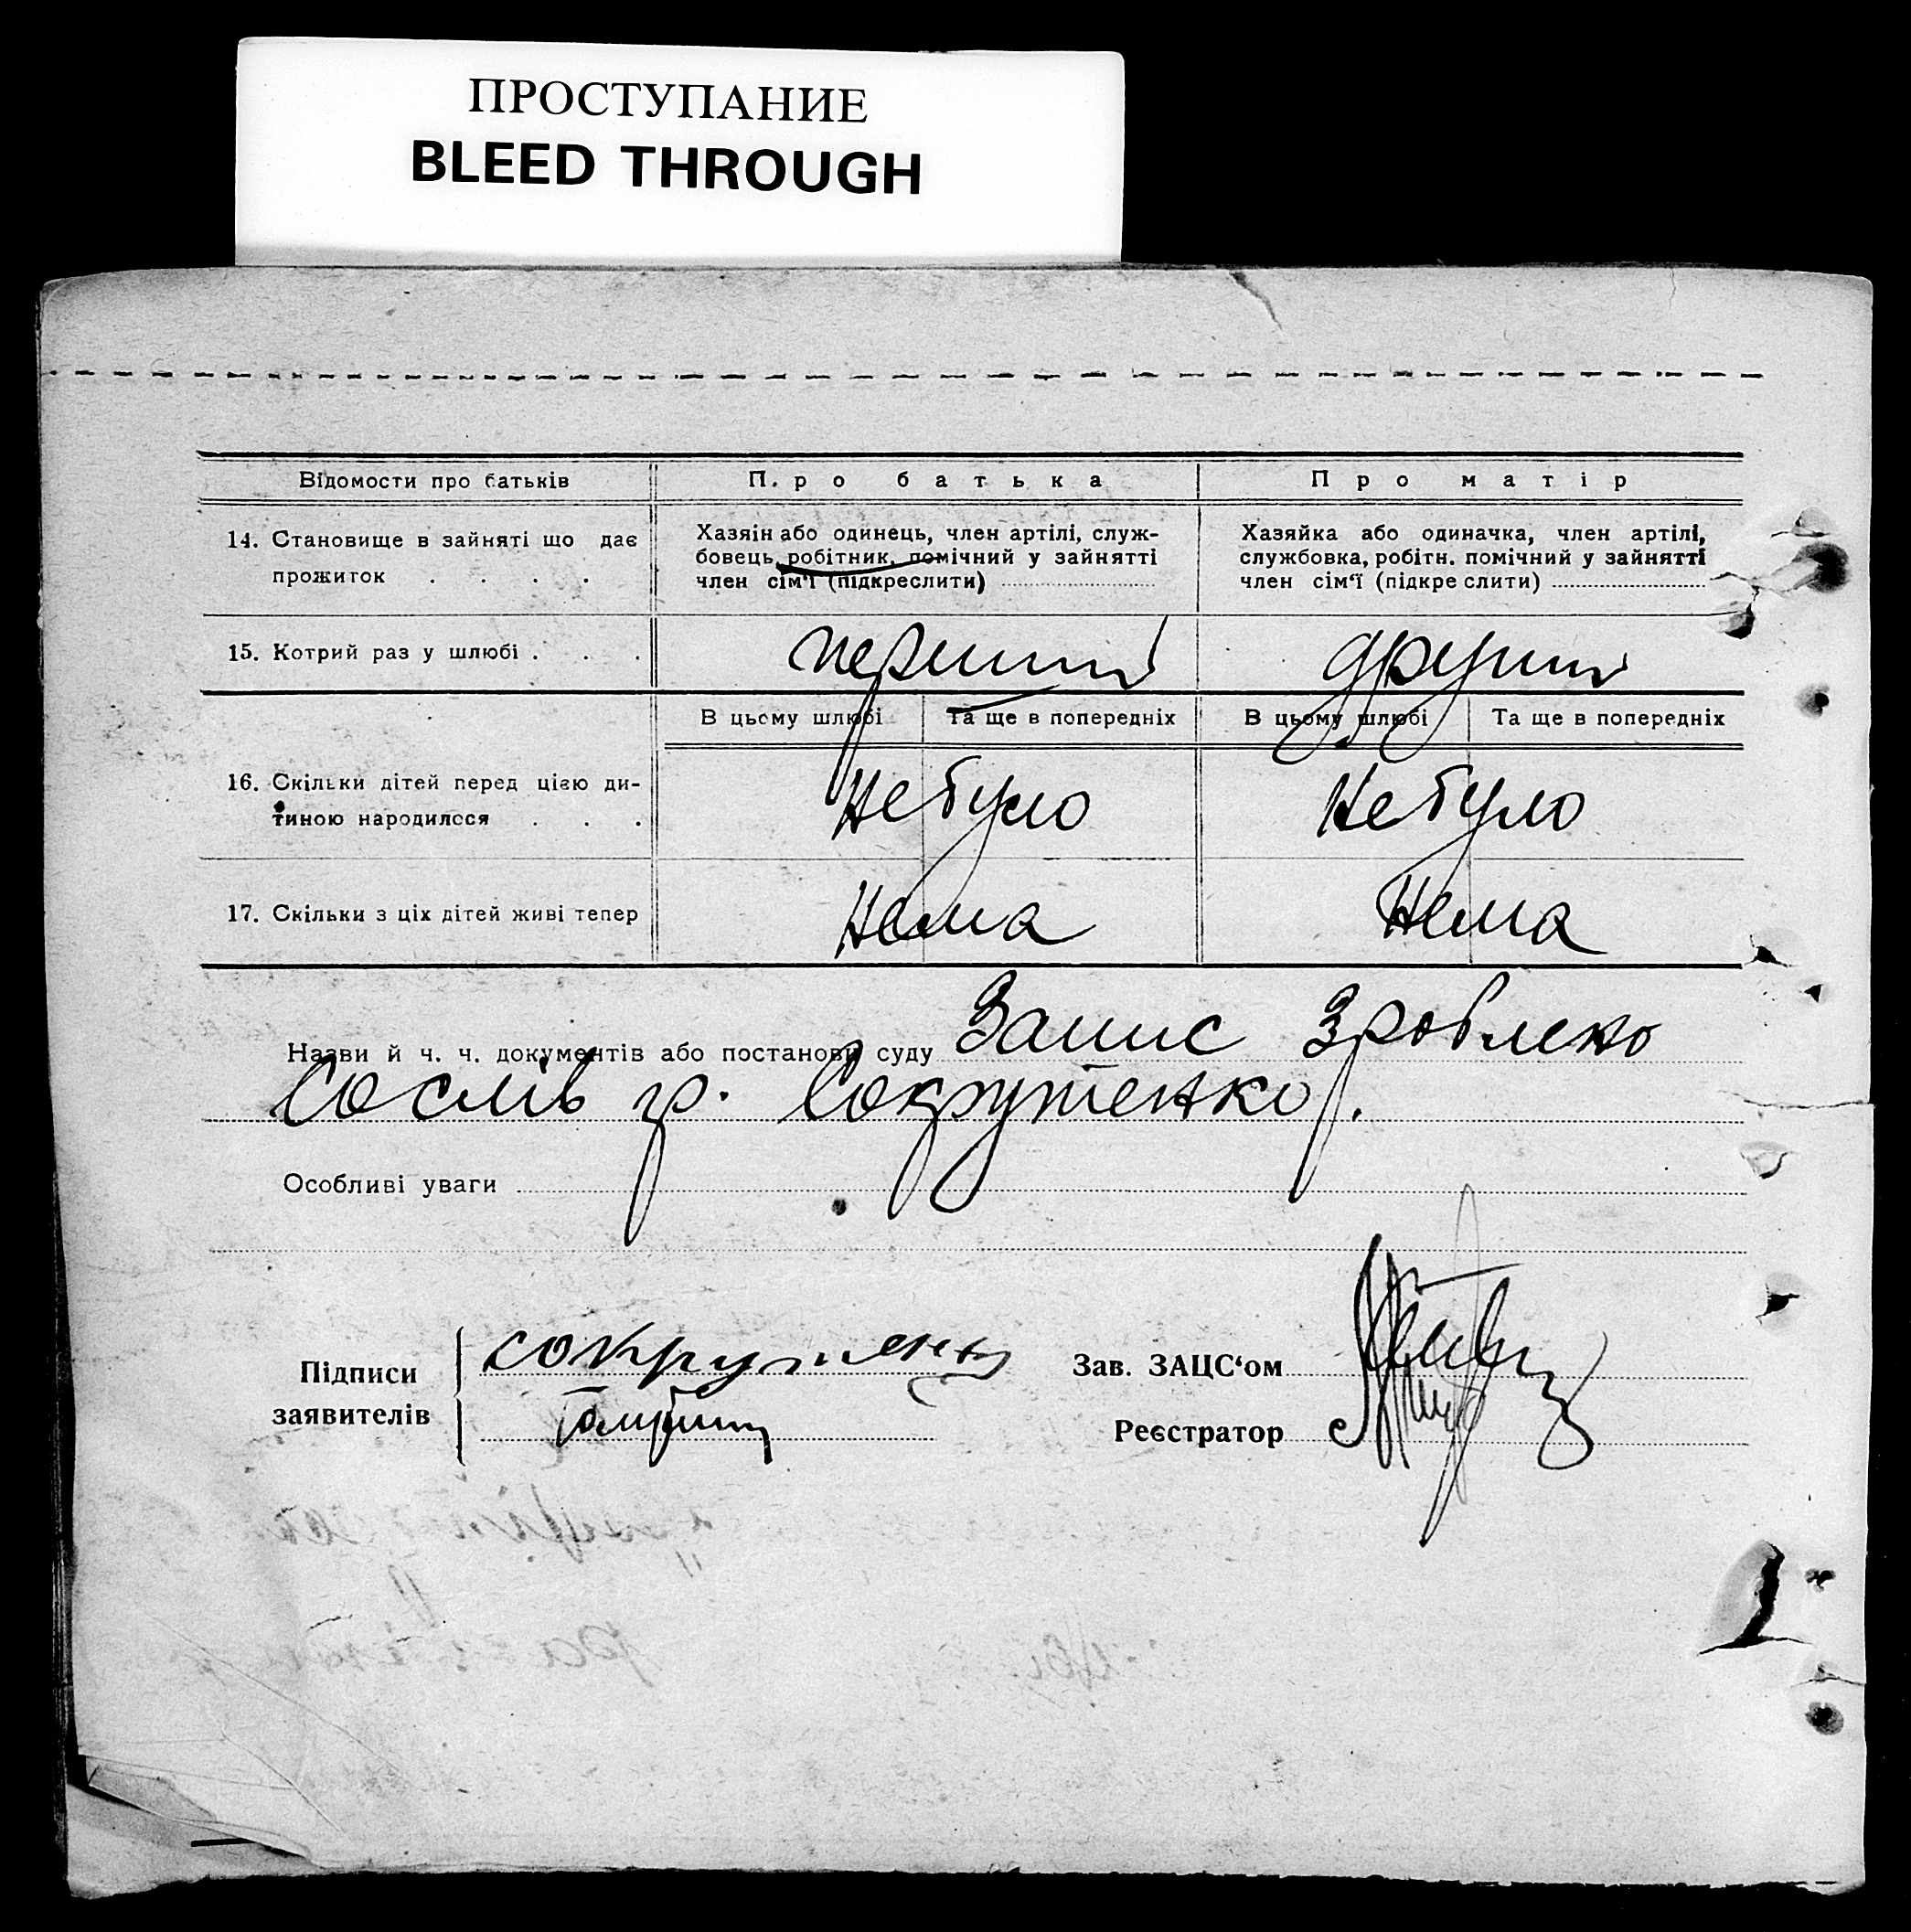 ПРОСТУПАНИЕ
BLEED THROUGH
Відомости про батьків
Про батька
Про матір
14. Становище в зайняті що дає
прожиток . . . .
Хазяін або одинець, член артілі, служ-
бовець, робітник, помічний у зайнятті
член сім'ї (підкреслити)
Хазяйка або одиначка, член артілі,
службовка, робітн. помічний у зайнятті
член сім'ї (підкреслити)
15. Котрий раз у шлюбі . . .
перший
другий
В цьому шлюбі
Та ще в попередніх
В цьому шлюбі
Та ще в попередніх
16. Скільки дітей перед цією ди-
тиною народилося . . .
Не було
Не було
17. Скільки з ціх дітей живі тепер
Нема
Нема
Назви й ч. ч. документів або постанови суду Запис зроблено
со слів гр. Сокрутенко.
Особливі уваги
Підписи
заявителів
Сокрутенко
Зав. ЗАЦС‘ом
Реєстратор